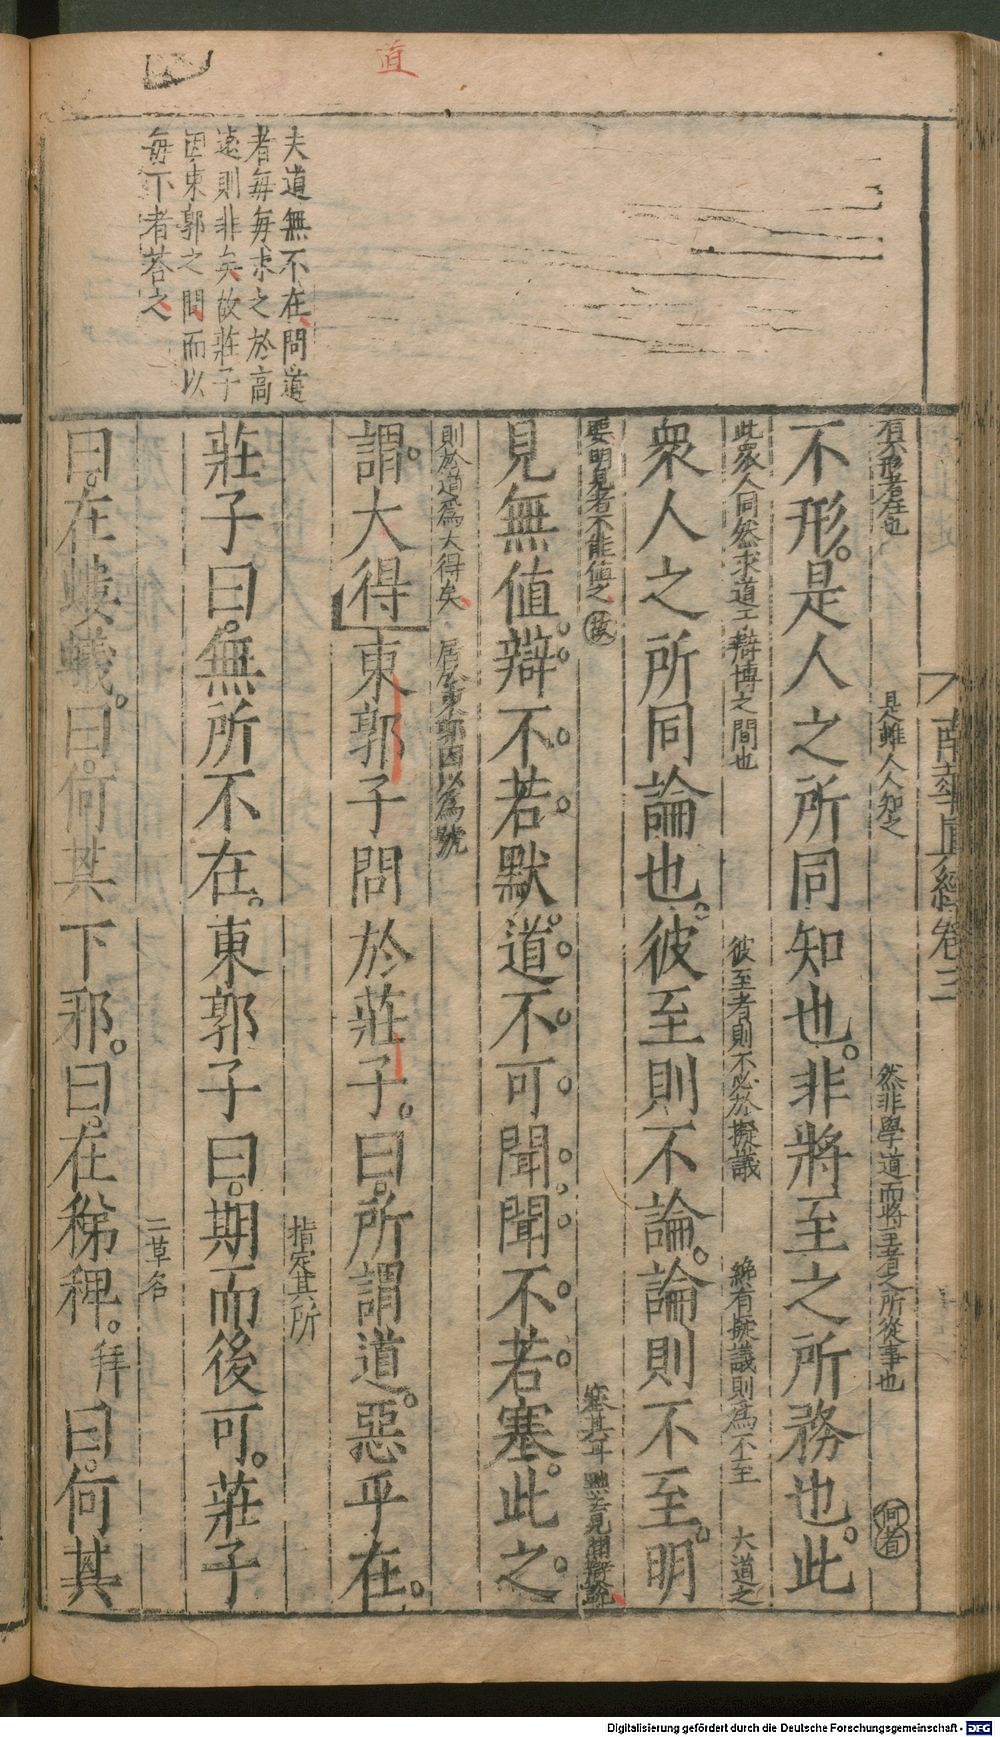 直
夫道無不在問道
者每每求之於高
遠則非矣故莊子
因東郭之問而以
每下者荅之
南華真經卷三
有不形者在也 是雖人人知之 然非學道而將至者之所從事也 何者
不形。是人之所同知也。非將至之所務也。此
此衆人同然求道于辯博之間也 彼至者則不必於擬議 纔有擬議則爲不至 大道之
衆人之所同論也。彼至則不論。論則不至。明
要明見者不能値之 故 塞其耳
見無値。辯不若默。道不可聞。聞不若塞。此之
則於道爲大得矣 居於東郭因以爲號
謂大得東郭子問於莊子。曰。所謂道。惡乎在。
指定其所
莊子曰。無所不在。東郭子曰。期而後可。莊子
二草名
曰。在螻蟻。曰。何其下邪。曰。在稊稗。拜曰。何其
Digitalisierung gefördert durch die Deutsche Forschungsgemeinschaft - DFG